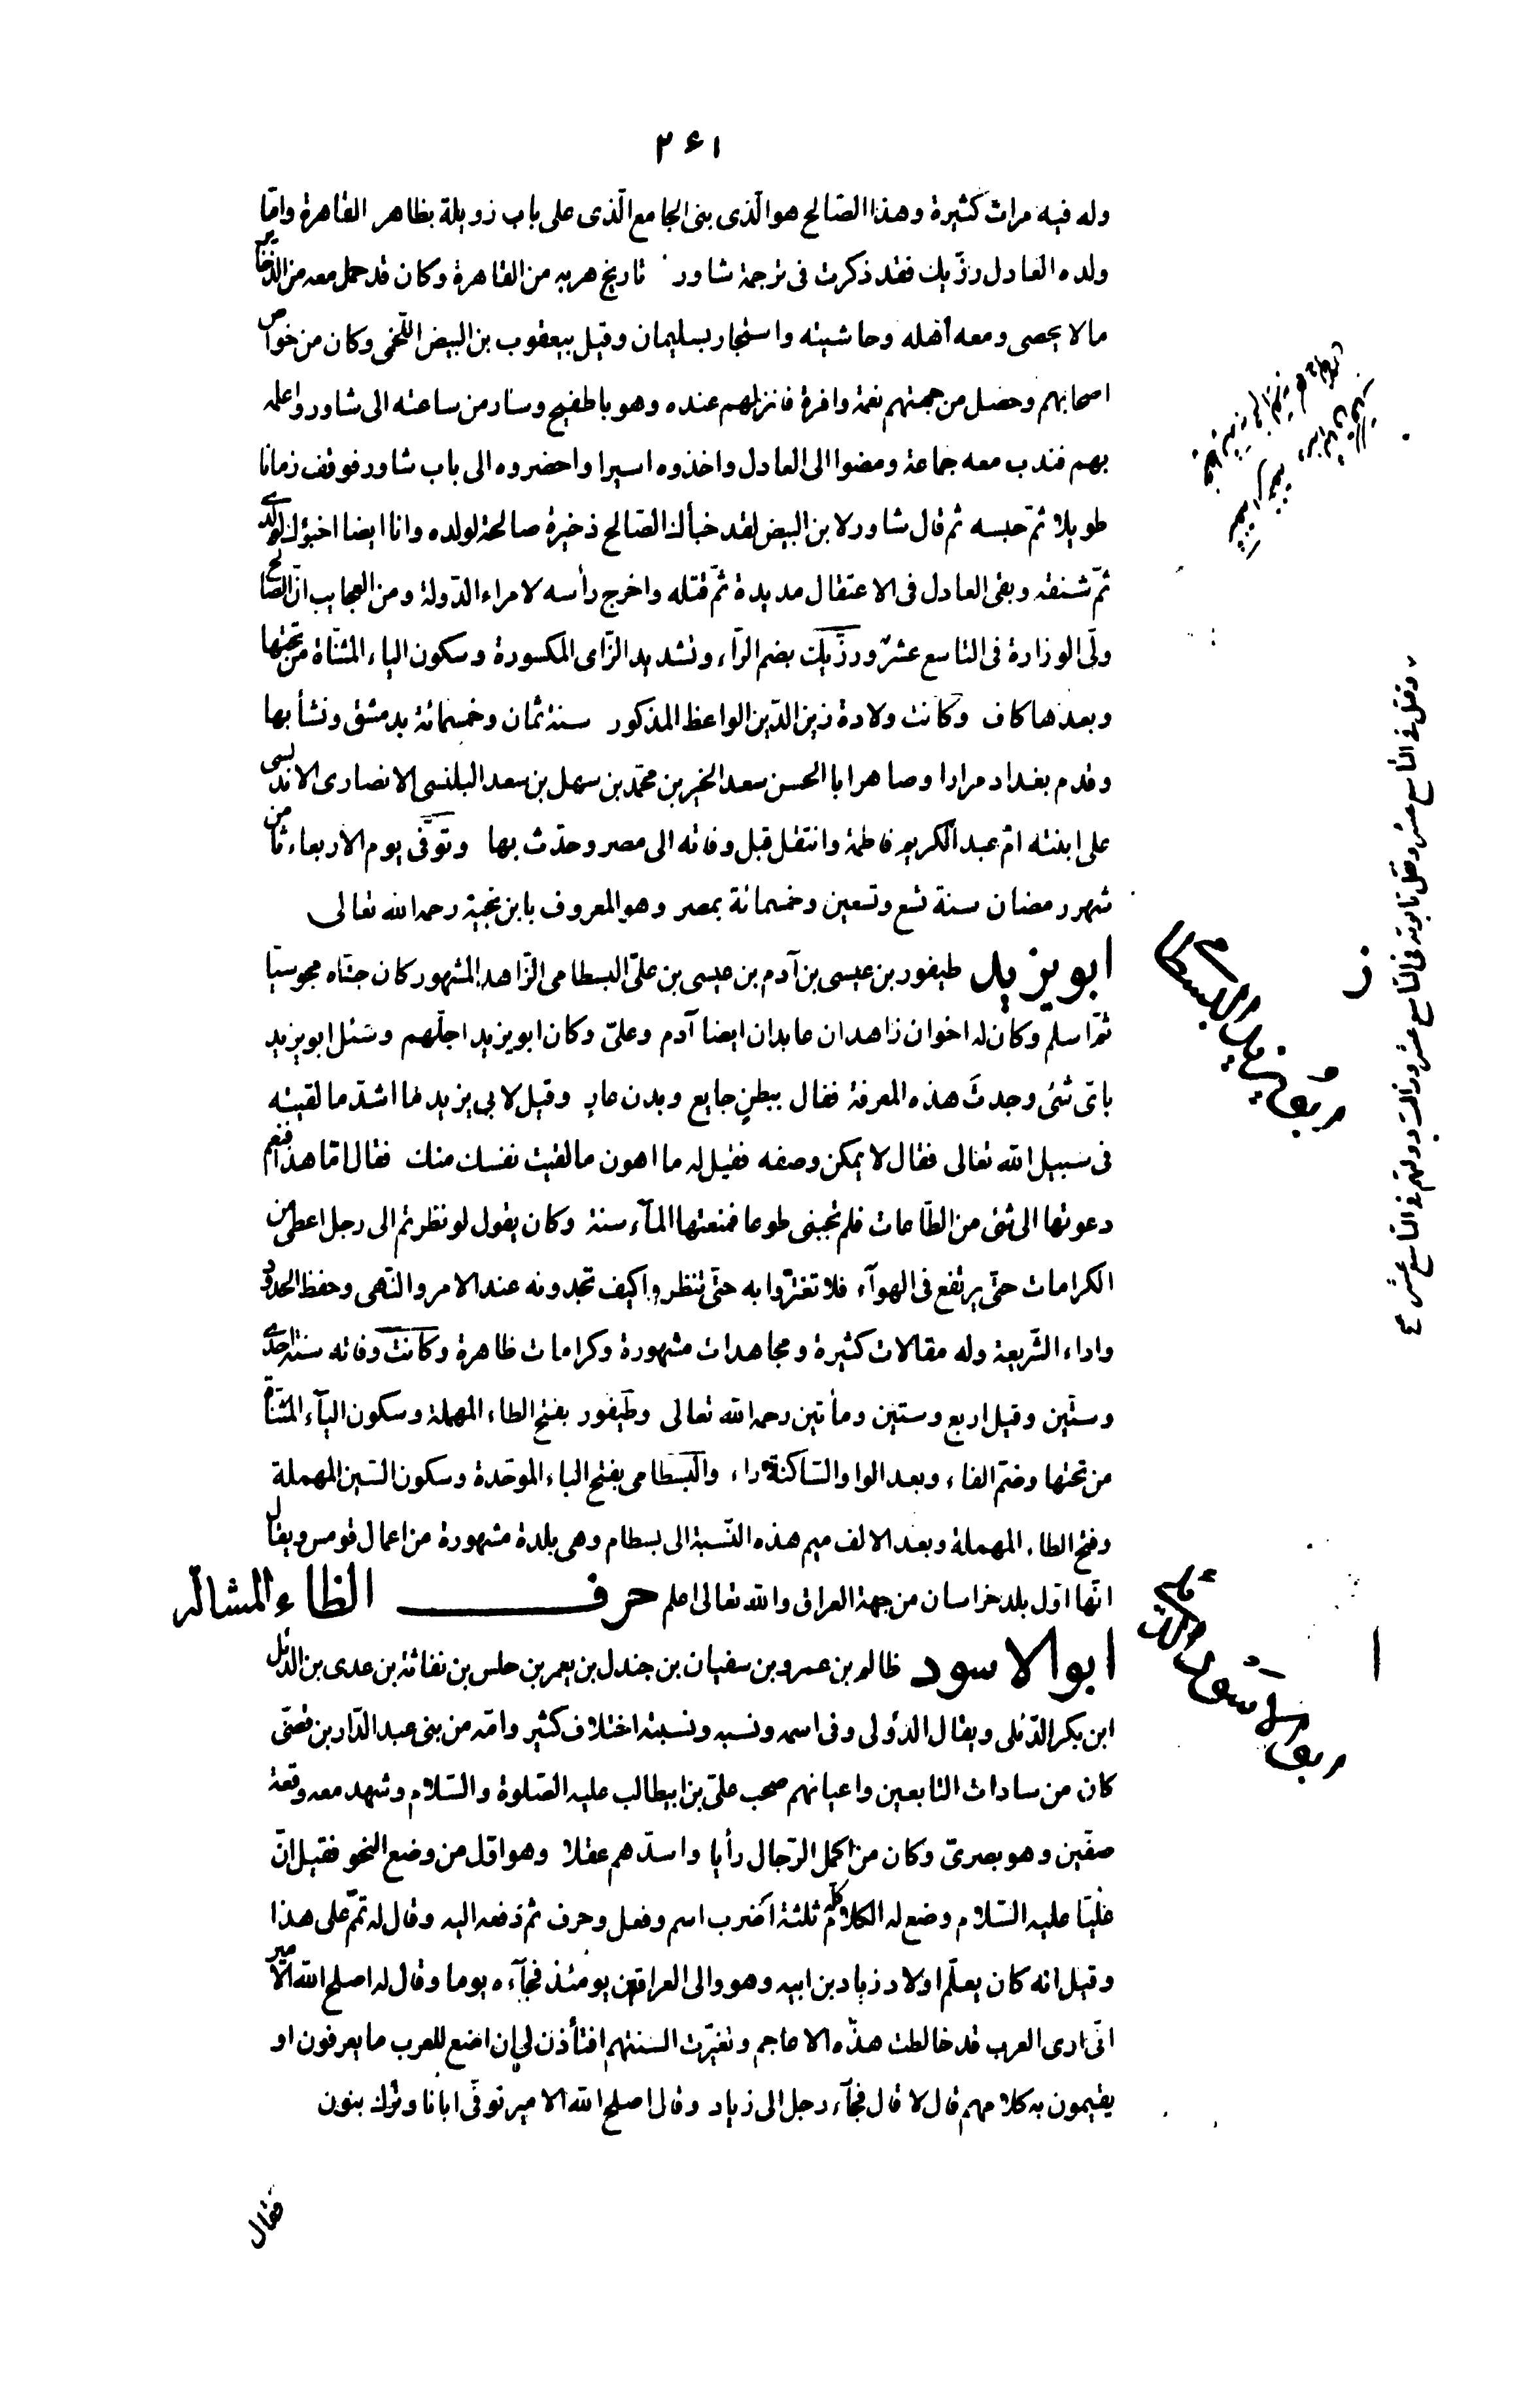 ٢۶١
وله فيه مراث كثيرة وهذا الصّالح هو الّذى بنى الجامع الّذى على باب زويلة بظاهر القاهرة وامّا
ولده العادل رزّيك فقد ذكرت فى ترجمة شاور تاريخ هربه من القاهرة وكان قد حمل معه من الذخاير
ما لا يحصى ومعه اهله وحاشيته واستجار بسليمان وقيل بيعقوب بن البيض اللّخمى وكان من خواص
اصحابهم وحصل من جهتهم نعمة وافرة فانزلهم عنده وهو باطفيح وسار من ساعته الى شاور واعلمه
بهم فندب معه جماعة ومضوا الى العادل واخذوه اسيرا واحضروه الى باب شاور فوقف زمانا
طويلا ثمّ حبسه ثم قال شاور لابن البيض لقد خبأك الصّالح ذخيرة صالحة لولده وانا ايضا اخبؤك لولدى
ثمّ شنقه وبقى العادل فى الاعتقال مديدة ثمّ قتله واخرج رأسه لامراء الدّولة ومن العجايب انّ الصّالح
ولّى الوزارة فى التاسع عشر ورزّيك بضم الرّاء وتشديد الزّاى المكسورة وسكون الياء المثنّاة من تحتها
وبعدها كاف وكانت ولادة زين الدّين الواعظ المذكور سنة ثمان وخمسمائة بدمشق ونشأ بها
وقدم بغداد مرارا وصاهر ابا الحسن سعد الخير بن محمّد بن سهل بن سعد البلنسى الانصارى الاندلسى
على ابنته امّ عبد الكريم فاطمة وانتقل قبل وفاته الى مصر وحدّث بها وتوفّى يوم الاربعاء ثامن
شهر رمضان سنة تسع وتسعين وخمسمائة بمصر وهو المعروف بابن نجية رحمه الله تعالى
ابو يزيد طيفور بن عيسى بن آدم بن عيسى بن علىّ البسطامى الزّاهد المشهور كان جدّه مجوسيّا
ثمّ اسلم وكان له اخوان زاهدان عابدان ايضا آدم وعلىّ وكان ابو يزيد اجلّهم وسئل ابو يزيد
باىّ شئ وجدت هذه المعرفة فقال ببطنٍ جايع وبدن عارٍ وقيل لابى يزيد ما اشدّ ما لقيته
فى سبيل الله تعالى فقال لا يمكن وصفه فقيل له ما اهون ما لقيت نفسك منك فقال امّا هذا فنعم
دعوتها الى شئ من الطّاعات فلم تجبنى طوعا فمنعتها المآء سنة وكان يقول لو نظرتم الى رجل اعطى من
الكرامات حتّى يرتفع فى الهوآء فلا تغترّوا به حتّى تنظروا كيف تجدونه عند الامر والنّهى وحفظ الحدود
واداء الشّريعة وله مقالات كثيرة ومجاهدات مشهورة وكرامات ظاهرة وكانت وفاته سنة احدى
وستّين وقيل اربع وستين ومأتين رحمه الله تعالى وطيفور بفتح الطاء المهملة وسكون اليآء المثنّاة
من تحتها وضمّ الفاء وبعد الواو السّاكنة راء والبسطامى بفتح الباء الموحّدة وسكون السّين المهملة
وفتح الطاء المهملة وبعد الالف ميم هذه النّسبة الى بسطام وهى بلدة مشهورة من اعمال قومس ويقال
انّها اوّل بلد خراسان من جهة العراق والله تعالى اعلم حرف الظاء المشالة
ابو الاسود ظالم بن عمرو بن سفيان بن جندل بن يعمر بن حلس بن نفاثة بن عدى بن الدّئل
ابن بكر الدّئلى ويقال الدؤلى وفى اسمه ونسبه ونسبته اختلاف كثير وامّه من بنى عبد الدّار بن قصىّ
كان من سادات التابعين واعيانهم صحب علىّ بن ابيطالب عليه الصّلوة والسّلام وشهد معه وقعة
صفّين وهو بصرىّ وكان من اكمل الرّجال رأيا واسدّهم عقلا وهو اوّل من وضع النحو فقيل انّ
عليّا عليه السّلام وضع له الكلام كلّه ثلثة اضرب اسم وفعل وحرف ثم دفعه اليه وقال له تمّم على هذا
وقيل انه كان يعلّم اولاد زياد بن ابيه وهو والى العراقين يومئذ فجآءه يوما وقال له اصلح الله الامير
انّى ارى العرب قد خالطت هذه الاعاجم وتغيّرت السنتهم افتأذن لى ان اضع للعرب ما يعرفون او
يقيمون به كلامهم قال لا قال فجآء رجل الى زياد وقال اصلح الله الامير توفّى ابانا وترك بنون
فقال
وقتل فى التاسع عشر ونقل تابوته فى التاسع عشر وزالت دولتهم فى التاسع عشر
ز
ابو يزيد البسطامى
ا
ابو الاسود الدئلى